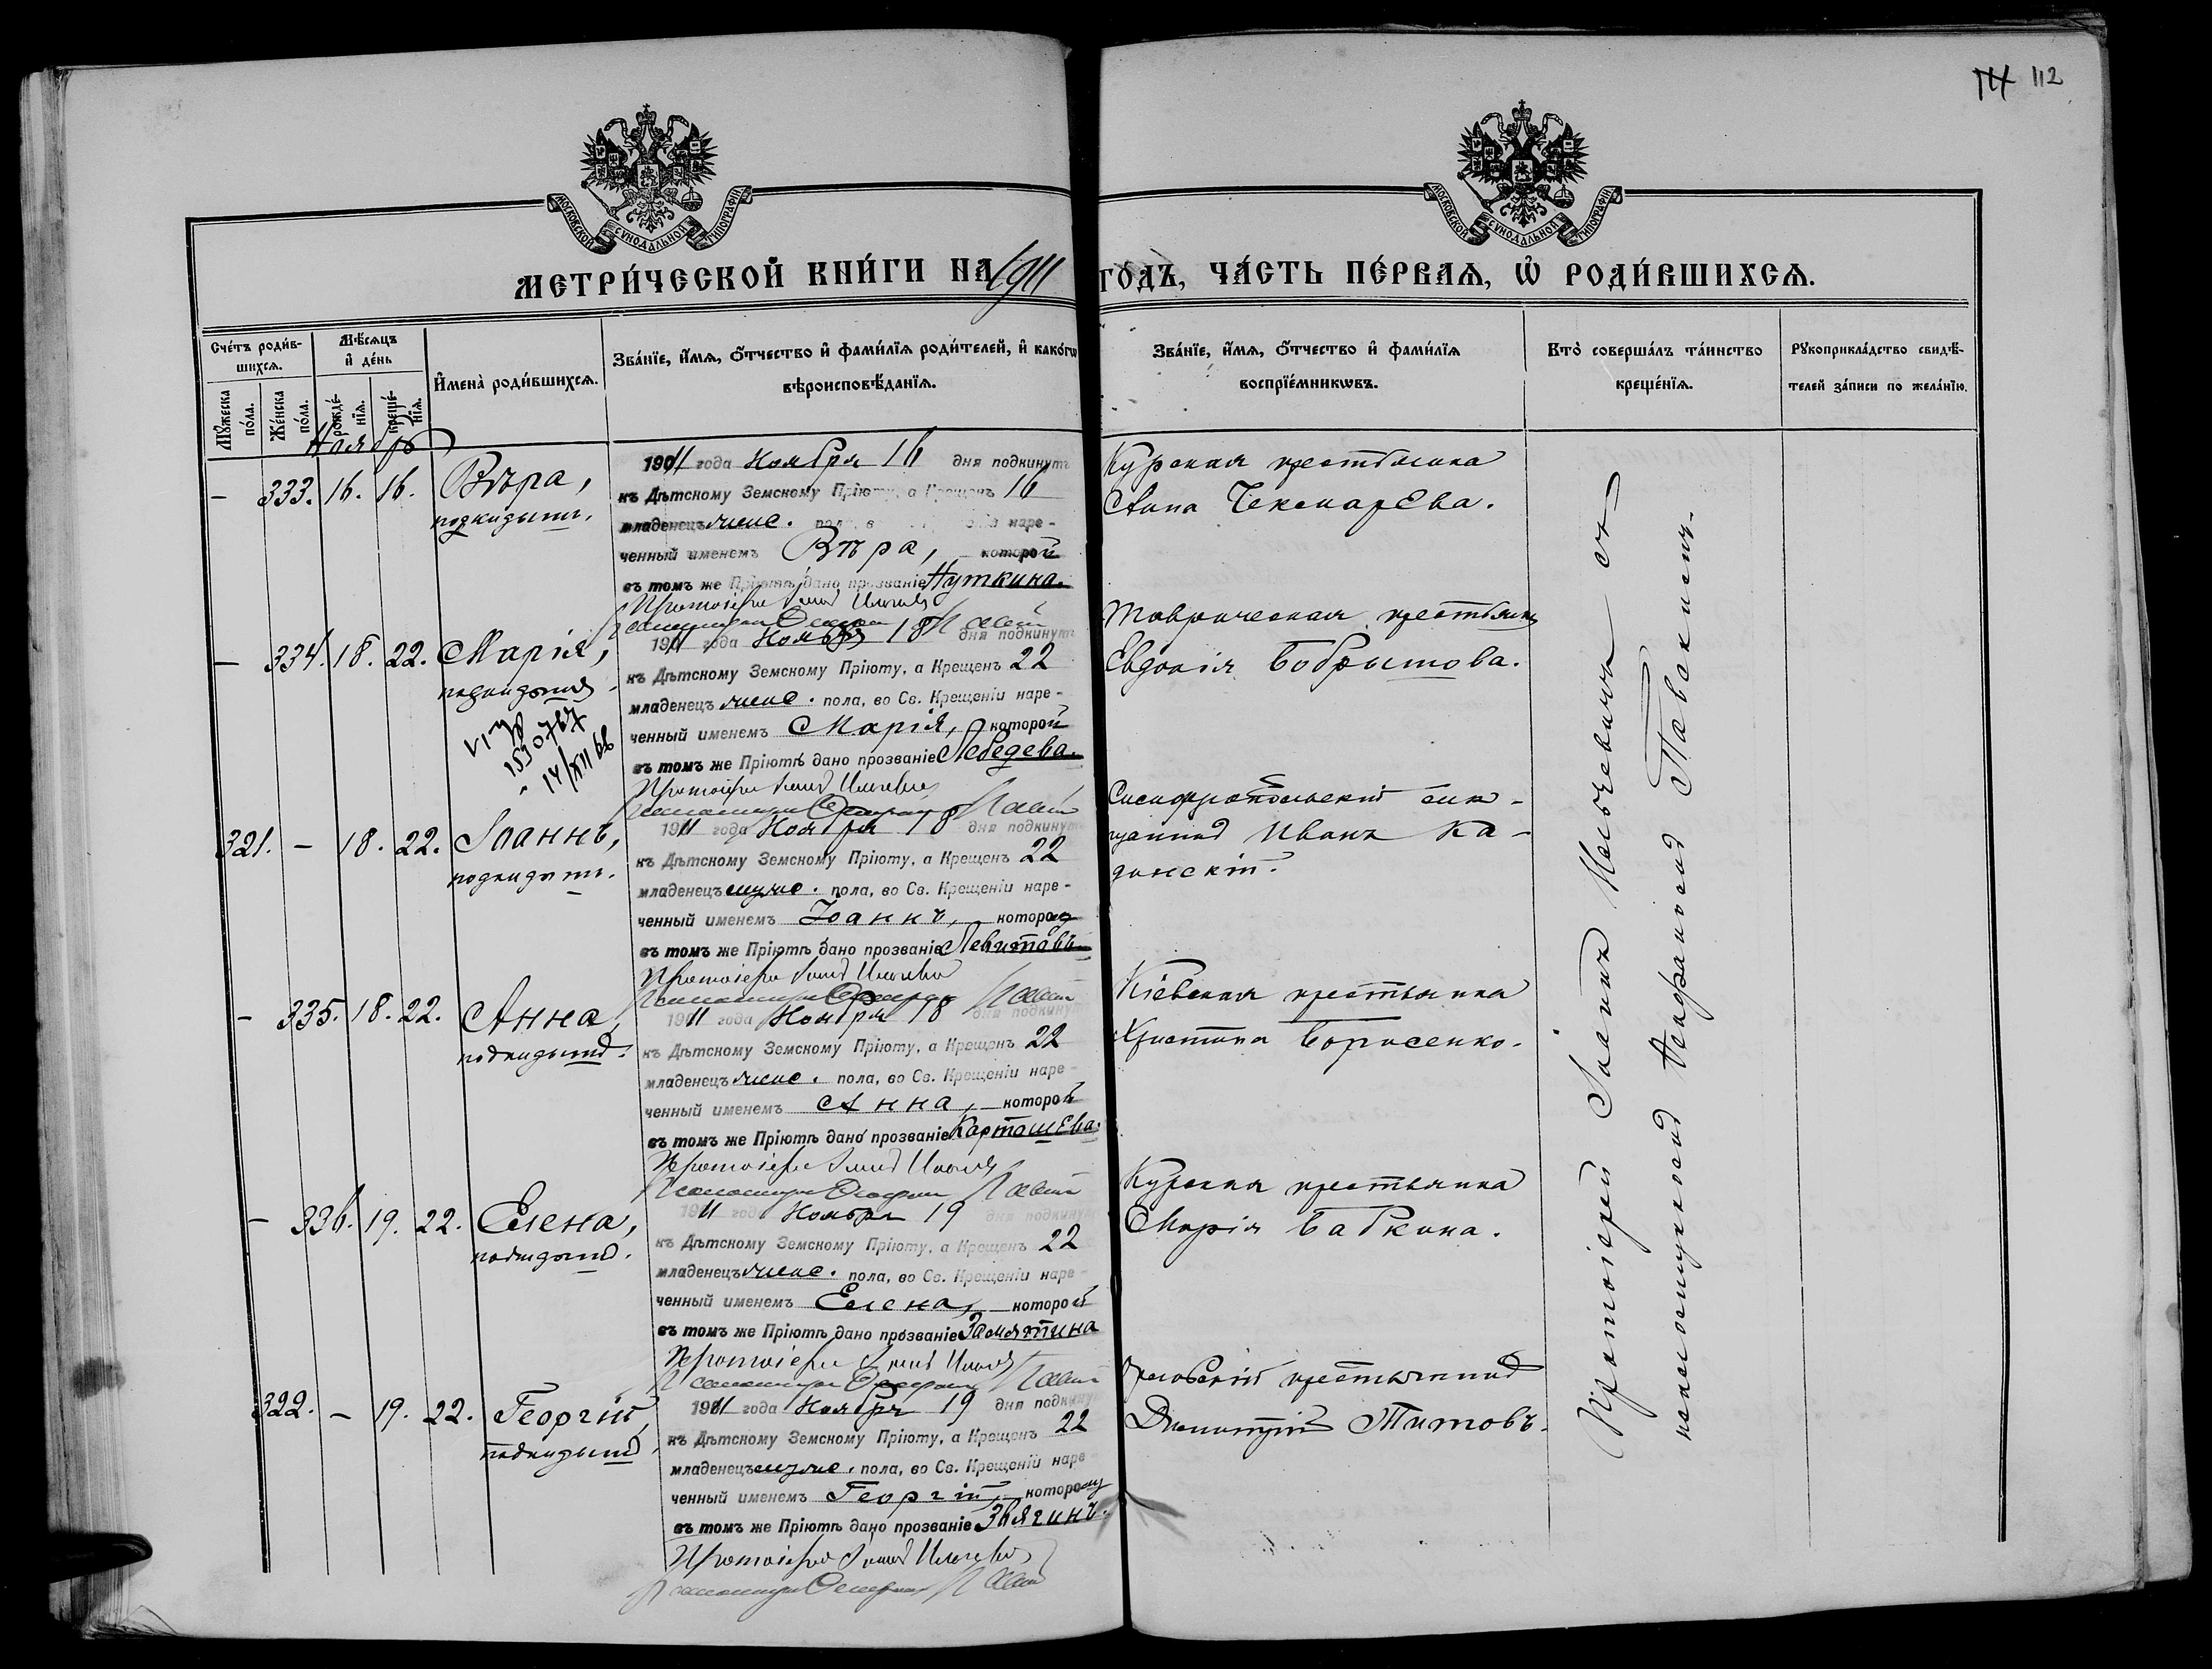 112
МОСКОВСКОЙ СѴНОДАЛЬНОЙ ТИПОГРАФІИ
МОСКОВСКОЙ СѴНОДАЛЬНОЙ ТИПОГРАФІИ
МЕТРИ́ЧЕСКОЙ КНИ́ГИ НА 1911 ГО́ДЪ, ЧА́СТЬ ПЕ́РВАѦ, Ѡ҆ РОДИ́ВШИХСѦ.
Сче́тъ роди́в-
шихсѧ.
Мꙋ́жеска по́ла.
Же́нска по́ла.
Мѣ́сѧцъ
и҆ де́нь
рожде́-
нїѧ.
креще́-
нїѧ.
И҆мена̀ роди́вшихсѧ.
Зва́нїе, и҆́мѧ, ѻ҆́тчество и҆ фами́лїѧ роди́телей, и҆ како́гѡ
вѣроисповѣ́данїѧ.
Зва́нїе, и҆́мѧ, ѻ҆́тчество и҆ фами́лїѧ
воспрїе́мникѡвъ.
Кто̀ соверша́лъ та́инство
креще́нїѧ.
Рꙋкоприкла́дство свидѣ́-
телей за́писи по жела́нїю.
Ноябрь
— 333. 16. 16. Вѣра,
подкидышъ.
1911 года Ноября 16 дня подкинутъ
къ Дѣтскому Земскому Пріюту, а Крещенъ 16
младенецъ женс. пола, во наре-
ченный именемъ Вѣра, которой
въ томъ же Пріютѣ дано прозваніе Путкина.
Курская крестьянка
Анна Чекмарева.
— 334. 18. 22. Марія,
подкидышъ
14/XII 66
1911 года Ноября 18 дня подкинутъ
къ Дѣтскому Земскому Пріюту, а Крещенъ 22
младенецъ женс. пола, во Св. Крещеніи наре-
ченный именемъ Марія, которой
въ томъ же Пріютѣ дано прозваніе Лебедева.
Таврическая крестьянка
Евдокія Бобрышова.
321. — 18. 22. Іоаннъ,
подкидышъ.
1911 года Ноября 18 дня подкинутъ
къ Дѣтскому Земскому Пріюту, а Крещенъ 22
младенецъ мужс. пола, во Св. Крещеніи наре-
ченный именемъ Іоаннъ, которому
въ томъ же Пріютѣ дано прозваніе Левитовъ
Симферопольскій мѣ-
щанинъ Иванъ Ка-
динскій.
— 335. 18. 22. Анна,
подкидышъ.
1911 года Ноября 18 дня подкинутъ
къ Дѣтскому Земскому Пріюту, а Крещенъ 22
младенецъ женс. пола, во Св. Крещеніи наре-
ченный именемъ Анна, которой
въ томъ же Пріютѣ дано прозваніе Карташева.
Кіевская крестьянка
Христина Борисенко.
— 336. 19. 22. Елена,
подкидышъ.
1911 года Ноября 19 дня подкинутъ
къ Дѣтскому Земскому Пріюту, а Крещенъ 22
младенецъ женс. пола, во Св. Крещеніи наре-
ченный именемъ Елена, которой
въ томъ же Пріютѣ дано прозваніе Замятина
Курская крестьянка
Марія Бабкина.
322. — 19. 22. Георгій,
подкидышъ
1911 года Ноября 19 дня подкинутъ
къ Дѣтскому Земскому Пріюту, а Крещенъ 22
младенецъ мужс. пола, во Св. Крещеніи наре-
ченный именемъ Георгій, которому
въ томъ же Пріютѣ дано прозваніе Звягинъ.
Орловскій крестьянинъ
Димитрій Титовъ.
Протоіерей Іоаннъ съ